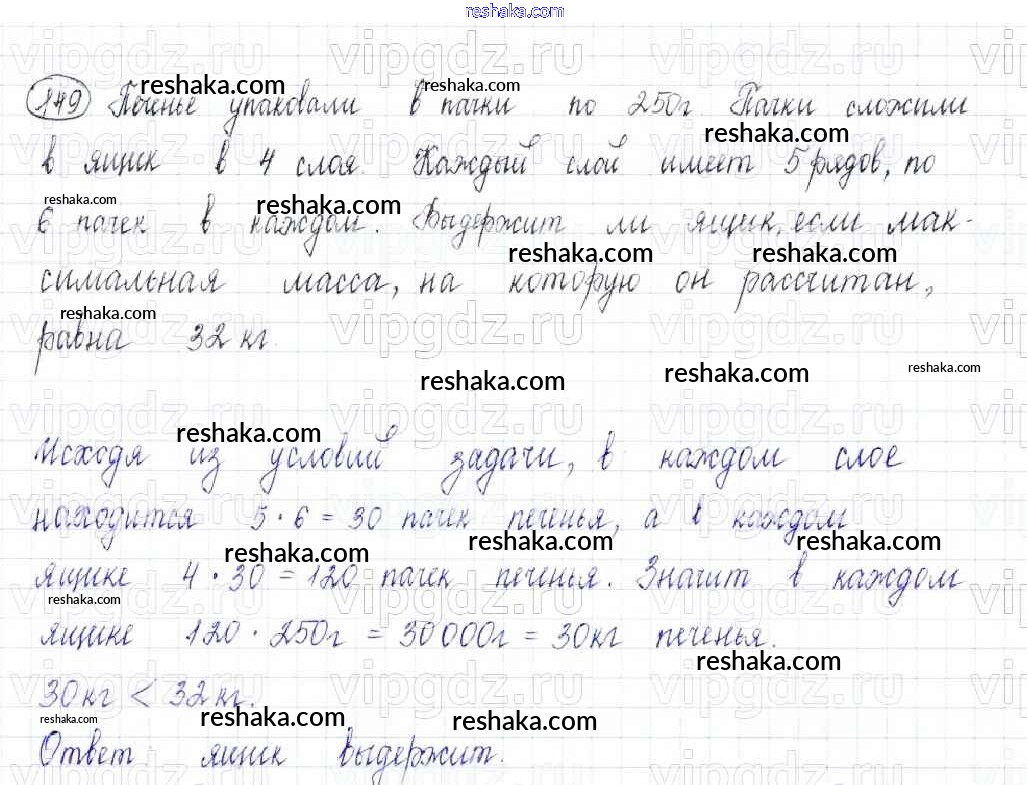 reshaka.com
149 Печенье упаковали в пачки по 250г Пачки сложили
в ящик в 4 слоя. Каждый слой имеет 5 рядов, по
6 пачек в каждом. Выдержит ли ящик, если мак-
симальная масса, на которую он рассчитан,
равна 32 кг.
Исходя из условий задачи, в каждом слое
находится 5 · 6 = 30 пачек печенья, а в каждом
ящике 4 · 30 = 120 пачек печенья. Значит в каждом
ящике 120 · 250г = 30 000г = 30кг печенья.
30кг < 32 кг.
Ответ ящик выдержит.